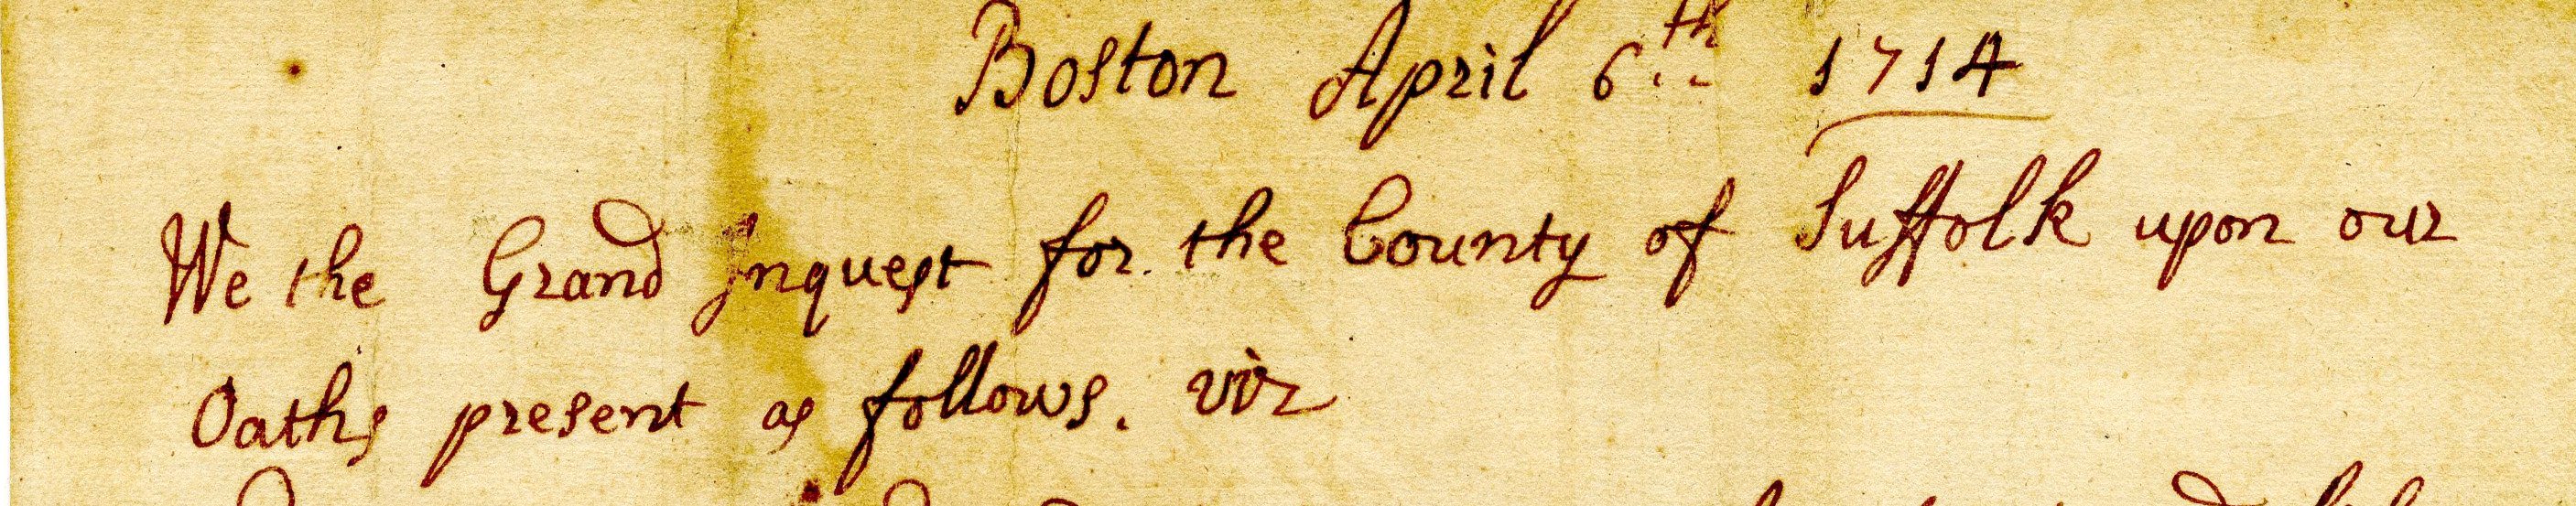 Boston April 6th 1714
We the Grand Inquest for the County of Suffolk upon our
Oaths present as follows. viz